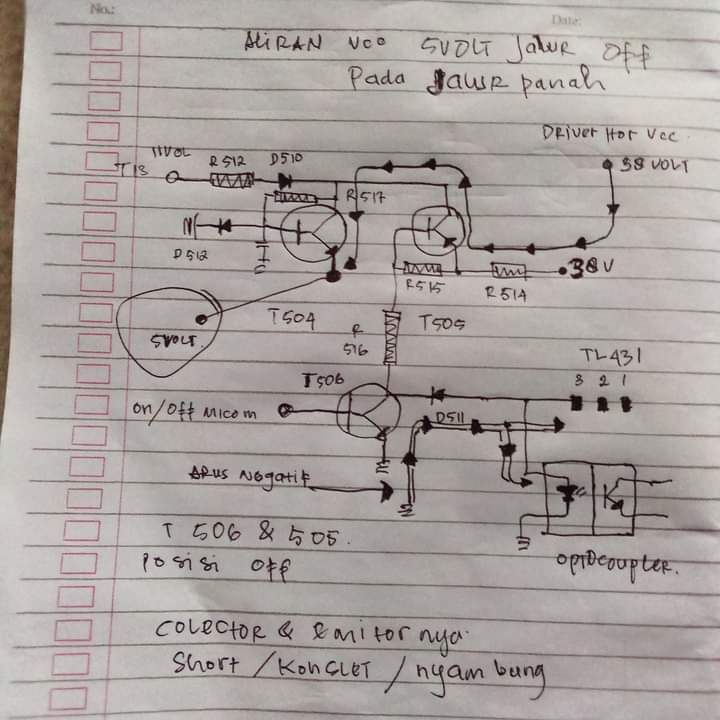 No.:
Date:
ALIRAN VCC 5VOLT JALUR OFF
Pada JALUR panah
DRIVER HOR VCC.
11VOL
R512
D510
T13
38 VOLT
R517
D512
R515
R514
38V
5VOLT.
T504
R
516
T505
TL431
3 2 1
T506
ON/OFF MICOM
D511
ARUS NEGATIF
T 506 & 505.
POSISI OFF
OPTOCOUPLER.
COLECTOR & EMITOR nya.
Short / KONSLET / nyambung